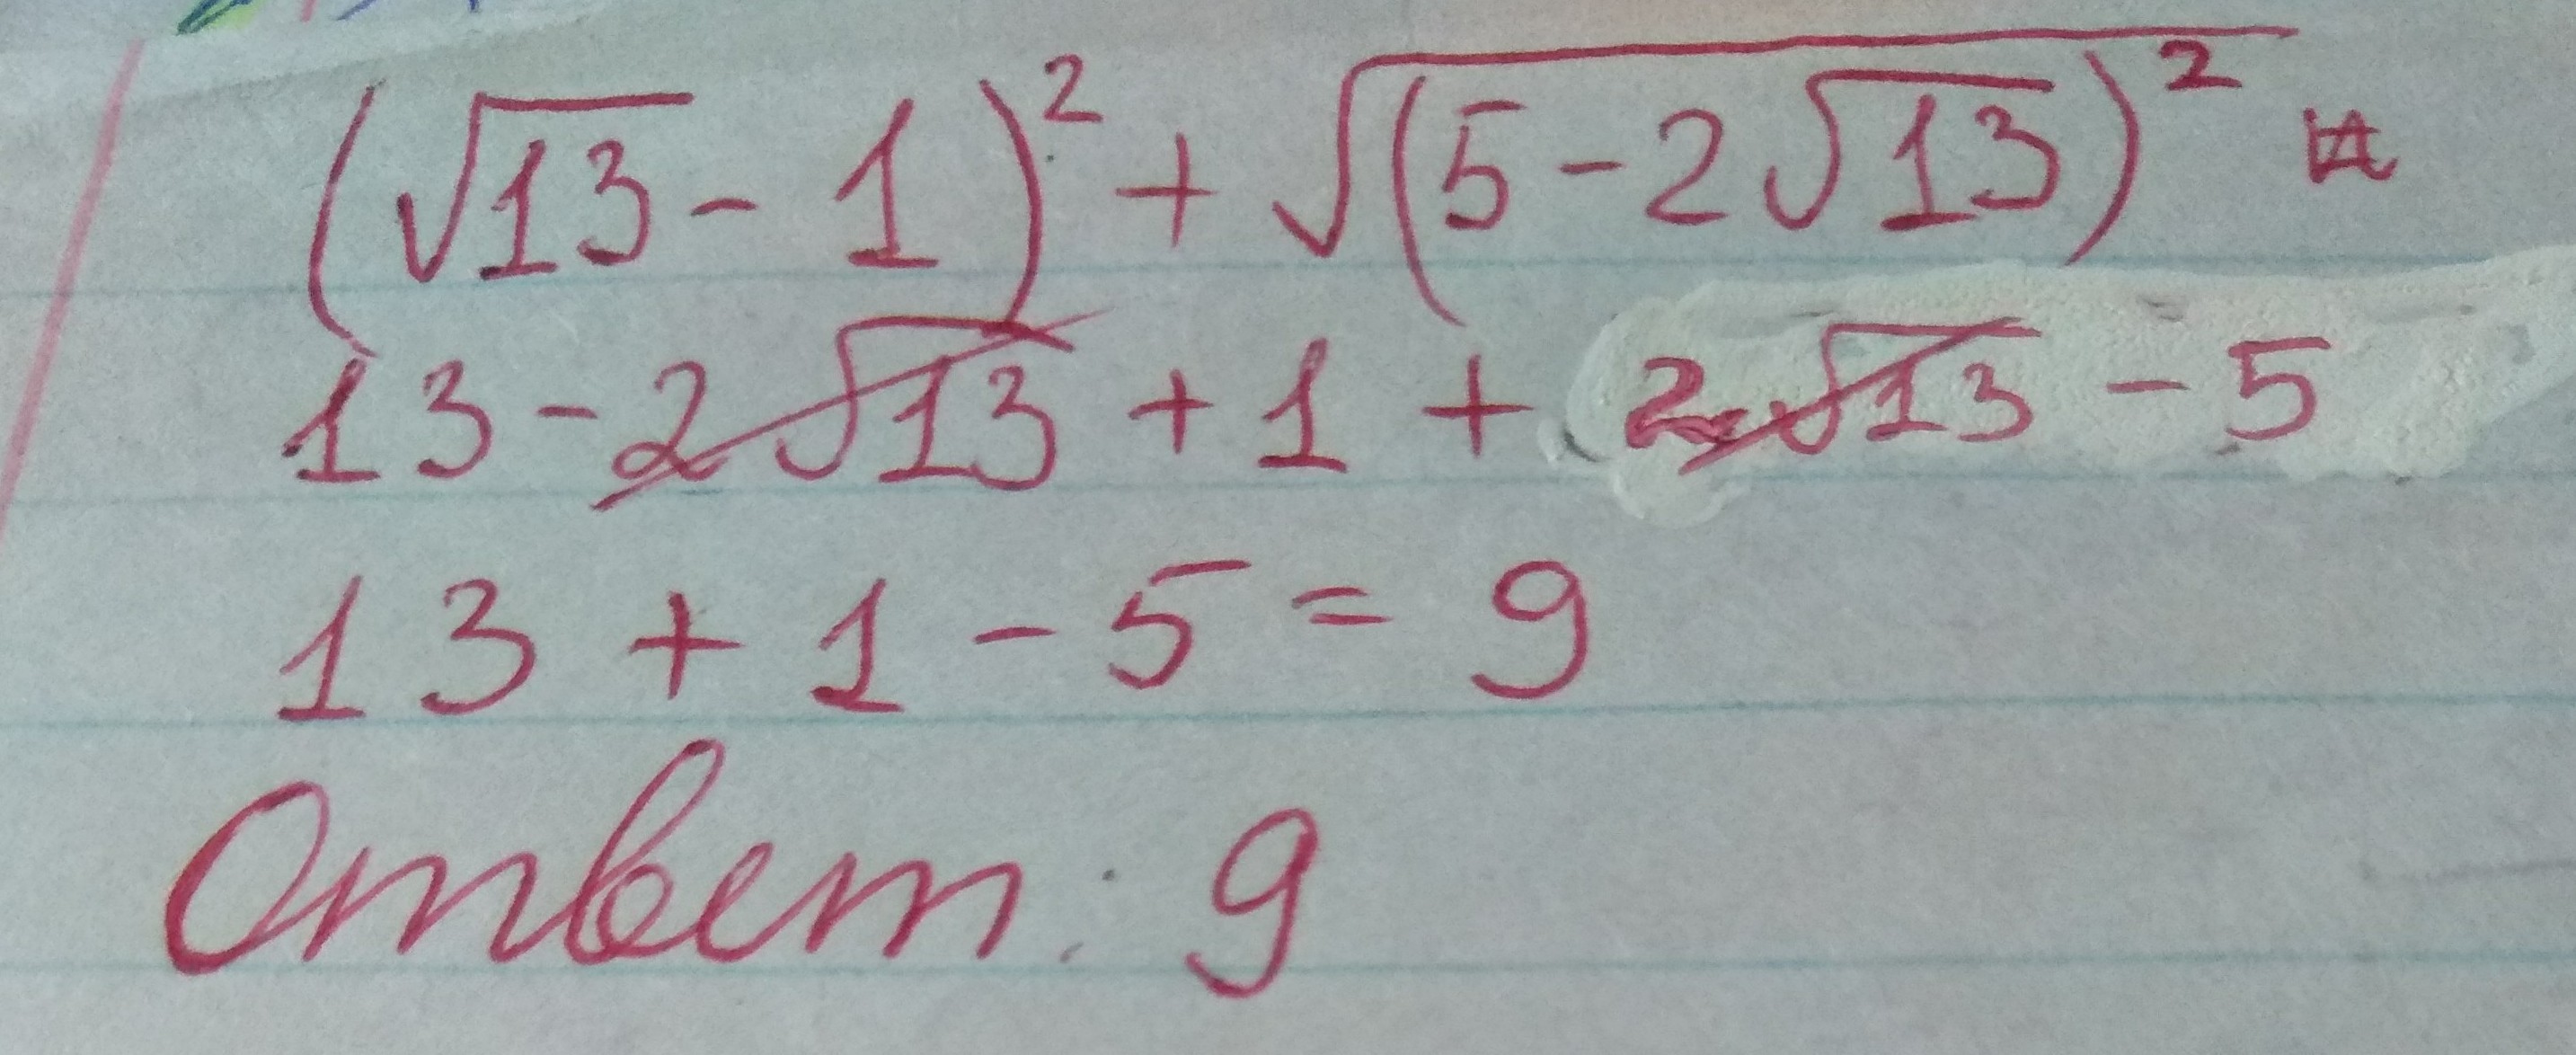 (√13 - 1)² + √(5 - 2√13)²
13 - 2√13 + 1 + 2√13 - 5
13 + 1 - 5 = 9
Ответ: 9